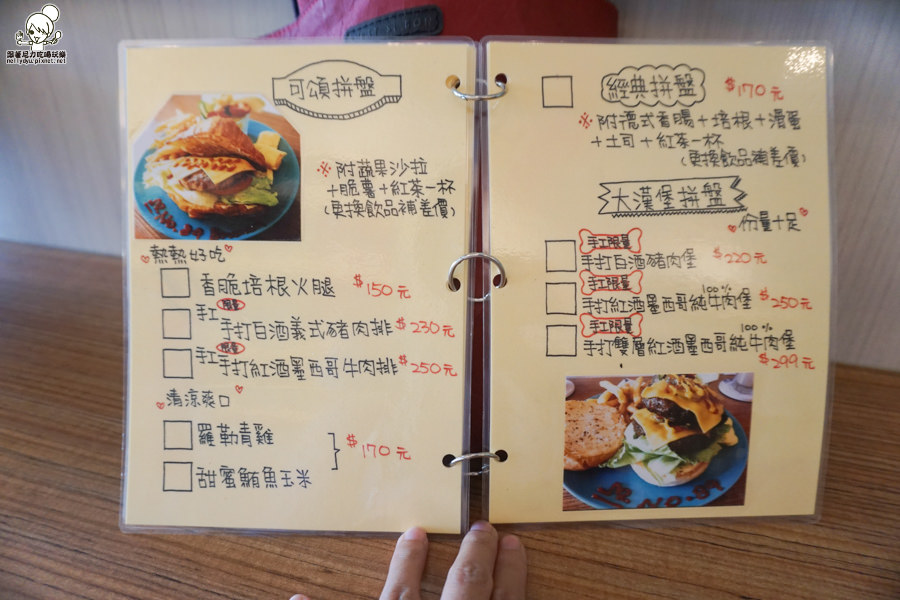 跟著尼力吃喝玩樂
nellydyu.pixnet.net
可頌拼盤
※附蔬果沙拉
+脆薯+紅茶一杯
(更換飲品補差價)
熱熱好吃
香脆培根火腿 $150元
手工限量
手打白酒義式豬肉排 $230元
手工限量
手打紅酒墨西哥牛肉排 $250元
清涼爽口
羅勒青雞
甜蜜鮪魚玉米
$170元
經典拼盤 $170元
※附德式香腸+培根+滑蛋
+土司+紅茶一杯
(更換飲品補差價)
大漢堡拼盤
份量十足
手工限量
手打白酒豬肉堡 $220元
手工限量
手打紅酒墨西哥100%純牛肉堡 $250元
手工限量
手打雙層紅酒墨西哥100%純牛肉堡
$299元